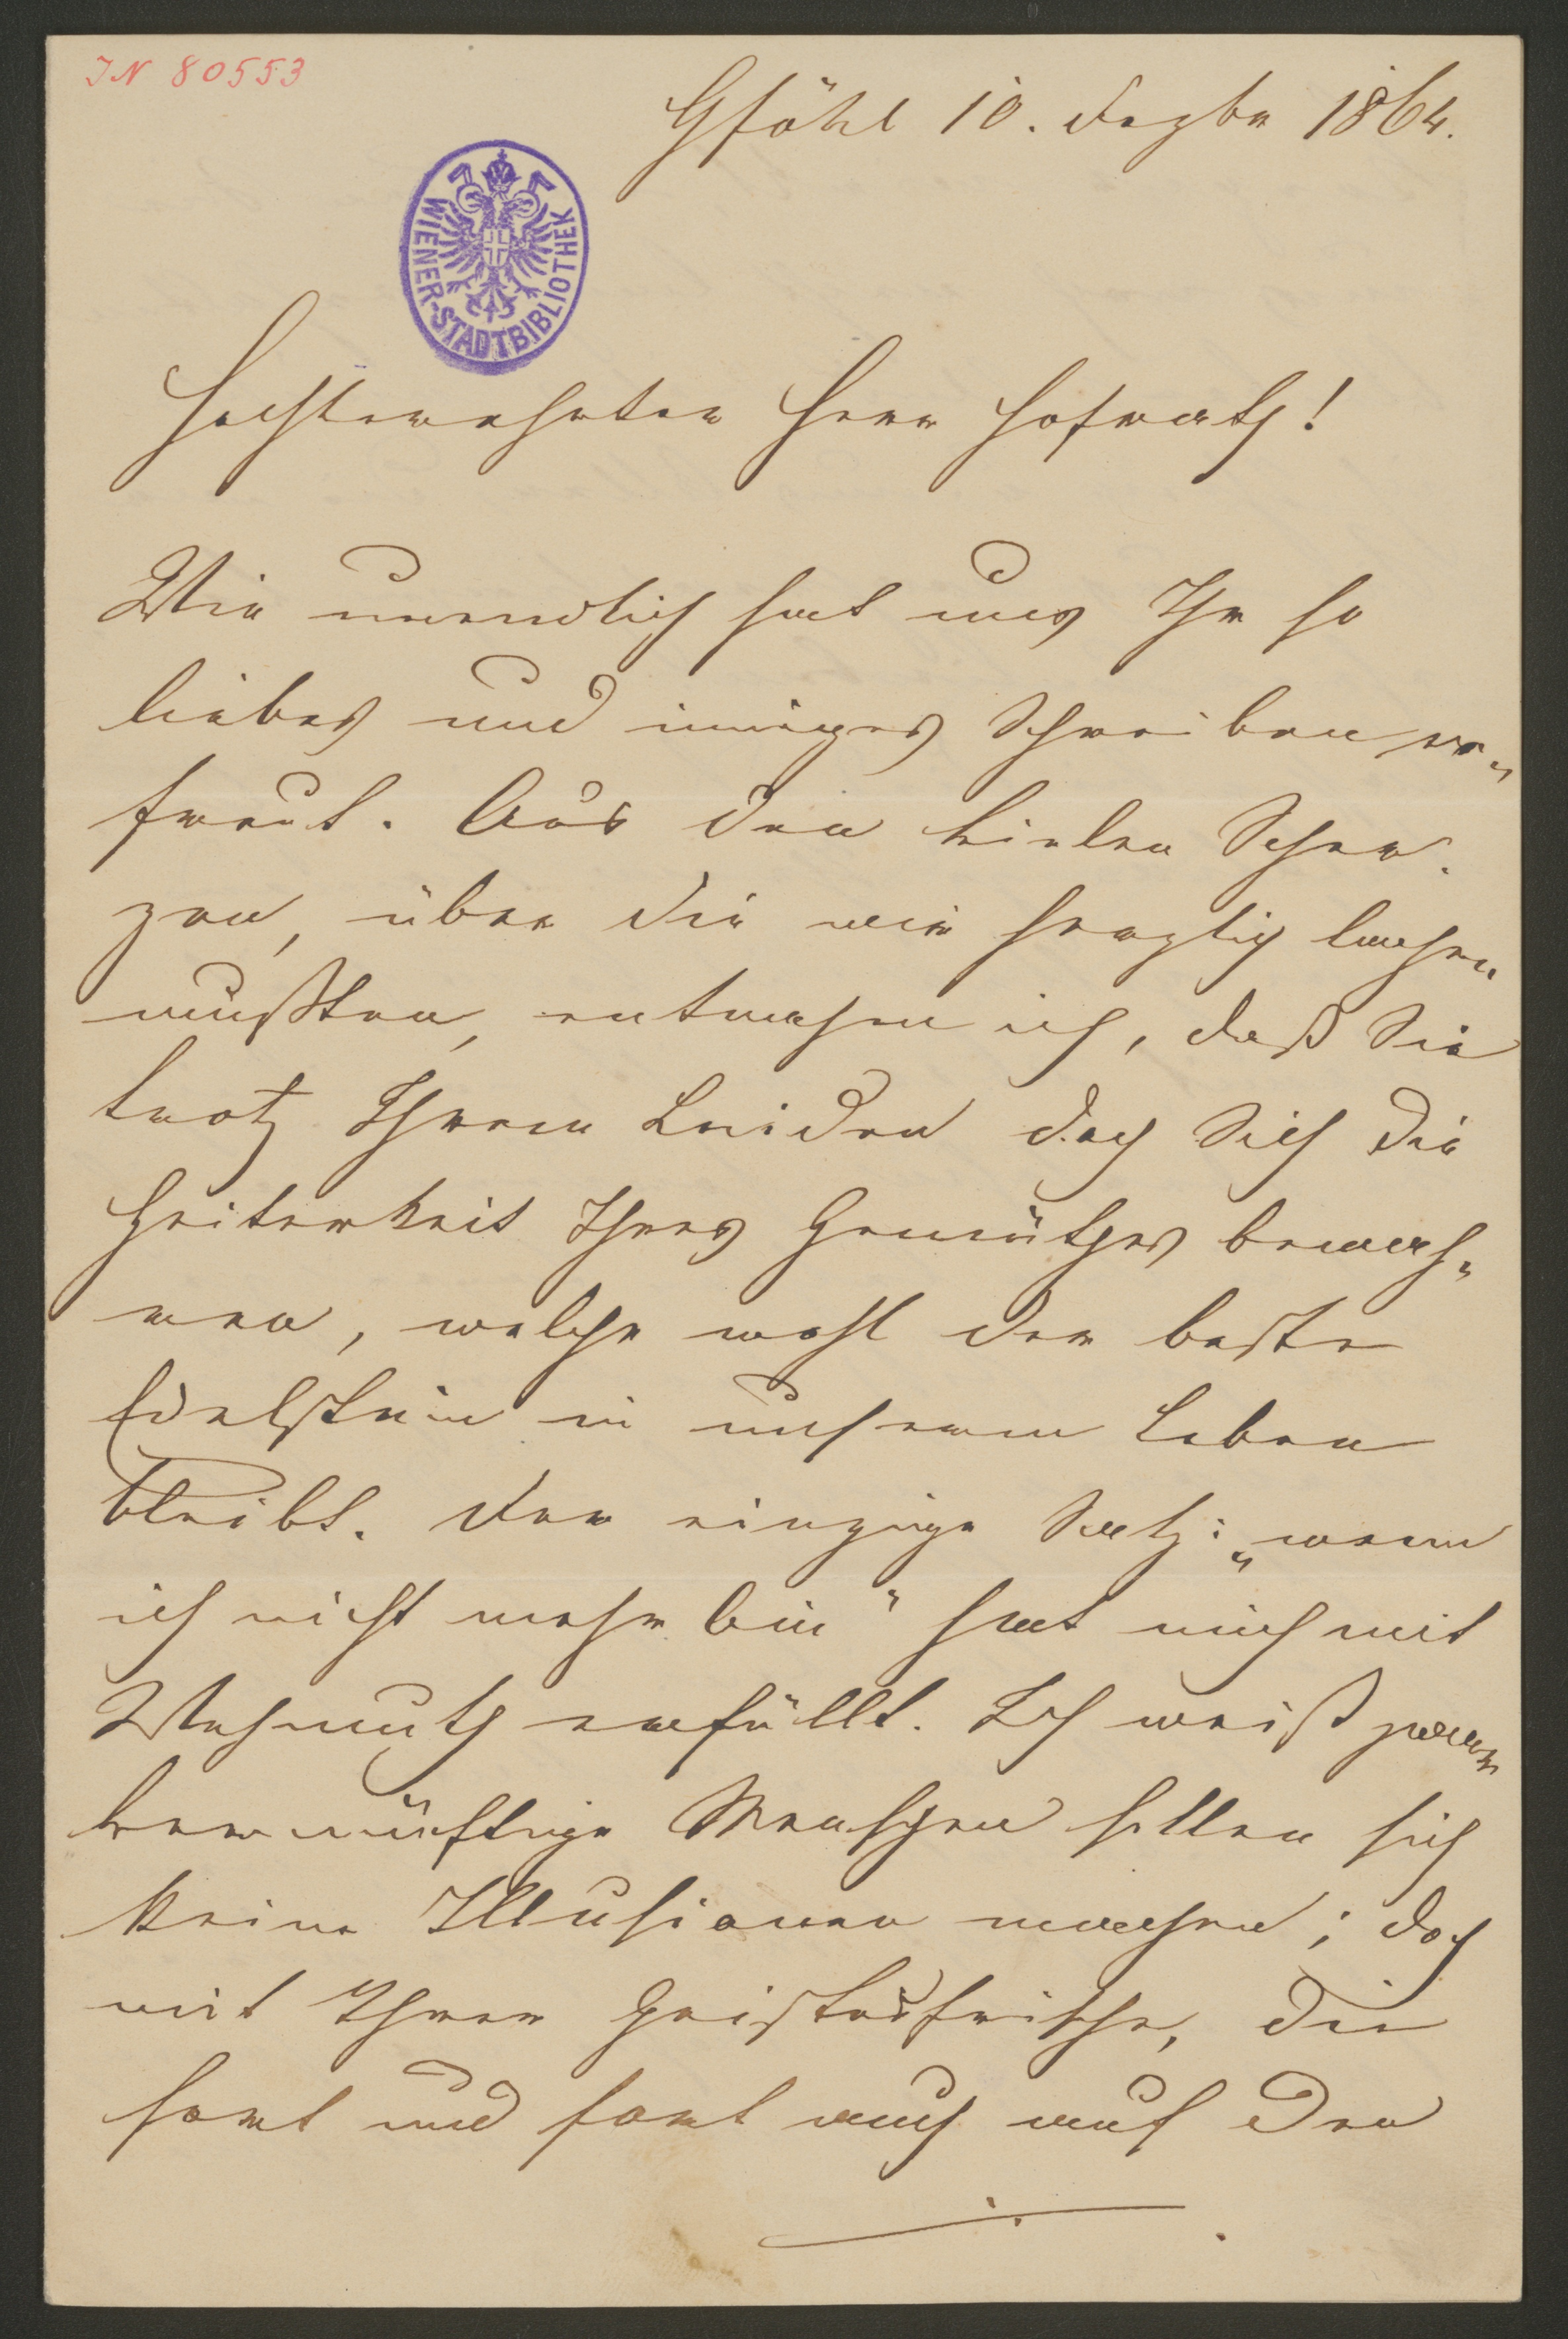 IN 80553
Gföhl 10. Dezbr 1864.
WIENER-STADTBIBLIOTHEK
Hochverehrter Herr Hofrath!
Wie unendlich hat uns Ihr so
liebes und inniges Schreiben er„
freut. Aus den vielen Scher„
zen, über die wir herzlich lachen
mußten, entnehme ich, daß Sie
trotz Ihrem Leiden doch Sich die
Heiterkeit Ihres Gemüthes bewah„
ren, welche wohl der beste
Edelstein in unserem Leben
bleibt. Der einzige Satz: „wenn
ich nicht mehr bin" hat mich mit
Wehmuth erfüllt. Ich weiß zwar
vernünftige Menschen sollen sich
keine Illusionen machen; doch
mit Ihrer Geistesfrische, die
fort und fort auch auf den